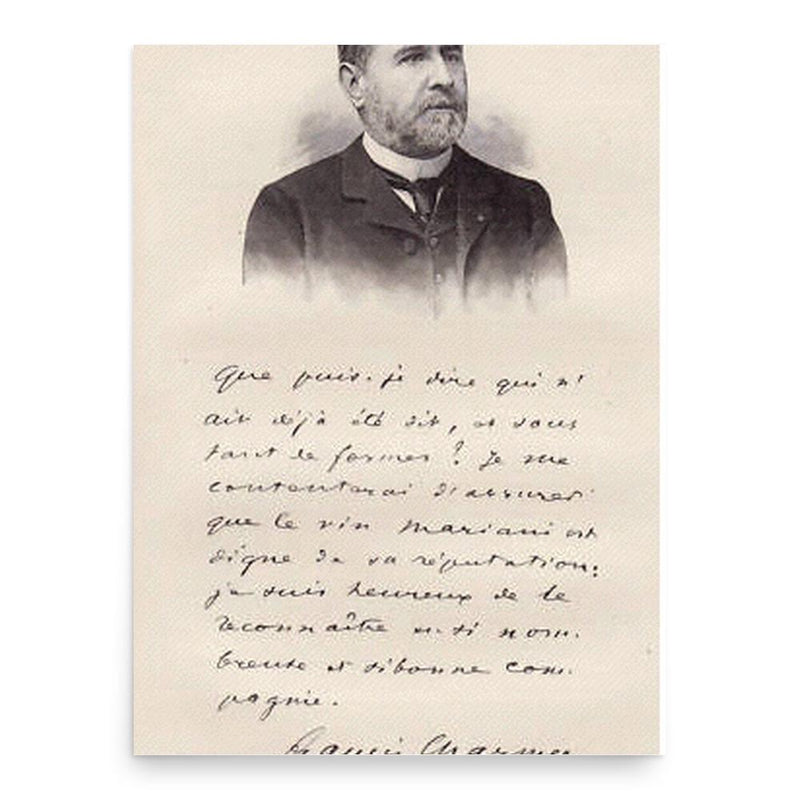 Que puis-je dire qui n'
ait déjà été dit, et sous
tant de formes ? Je me
contenterai d'assurer
que le vin Mariani est
digne de sa réputation :
je suis heureux de le
reconnaître en si nom-
breuse et si bonne com-
pagnie.
Francis Charmes